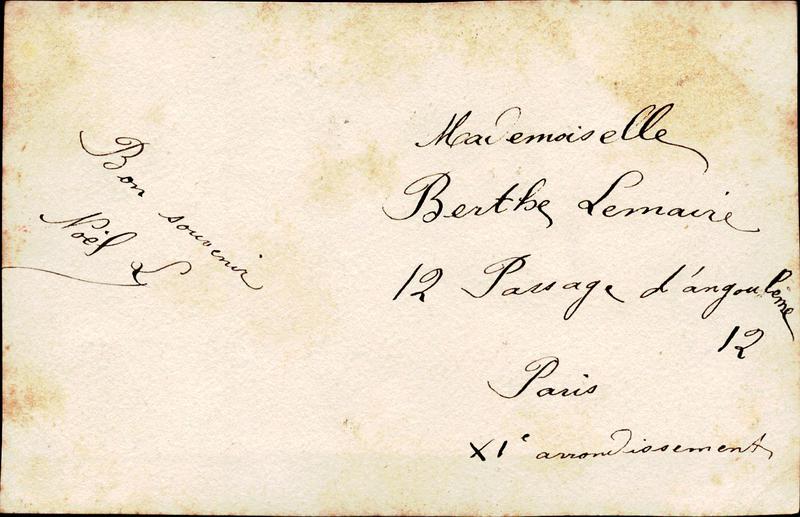 Bon souvenir
Noël L
Mademoiselle
Berthe Lemaire
12 Passage d'angoulême
12
Paris
XIe arrondissement